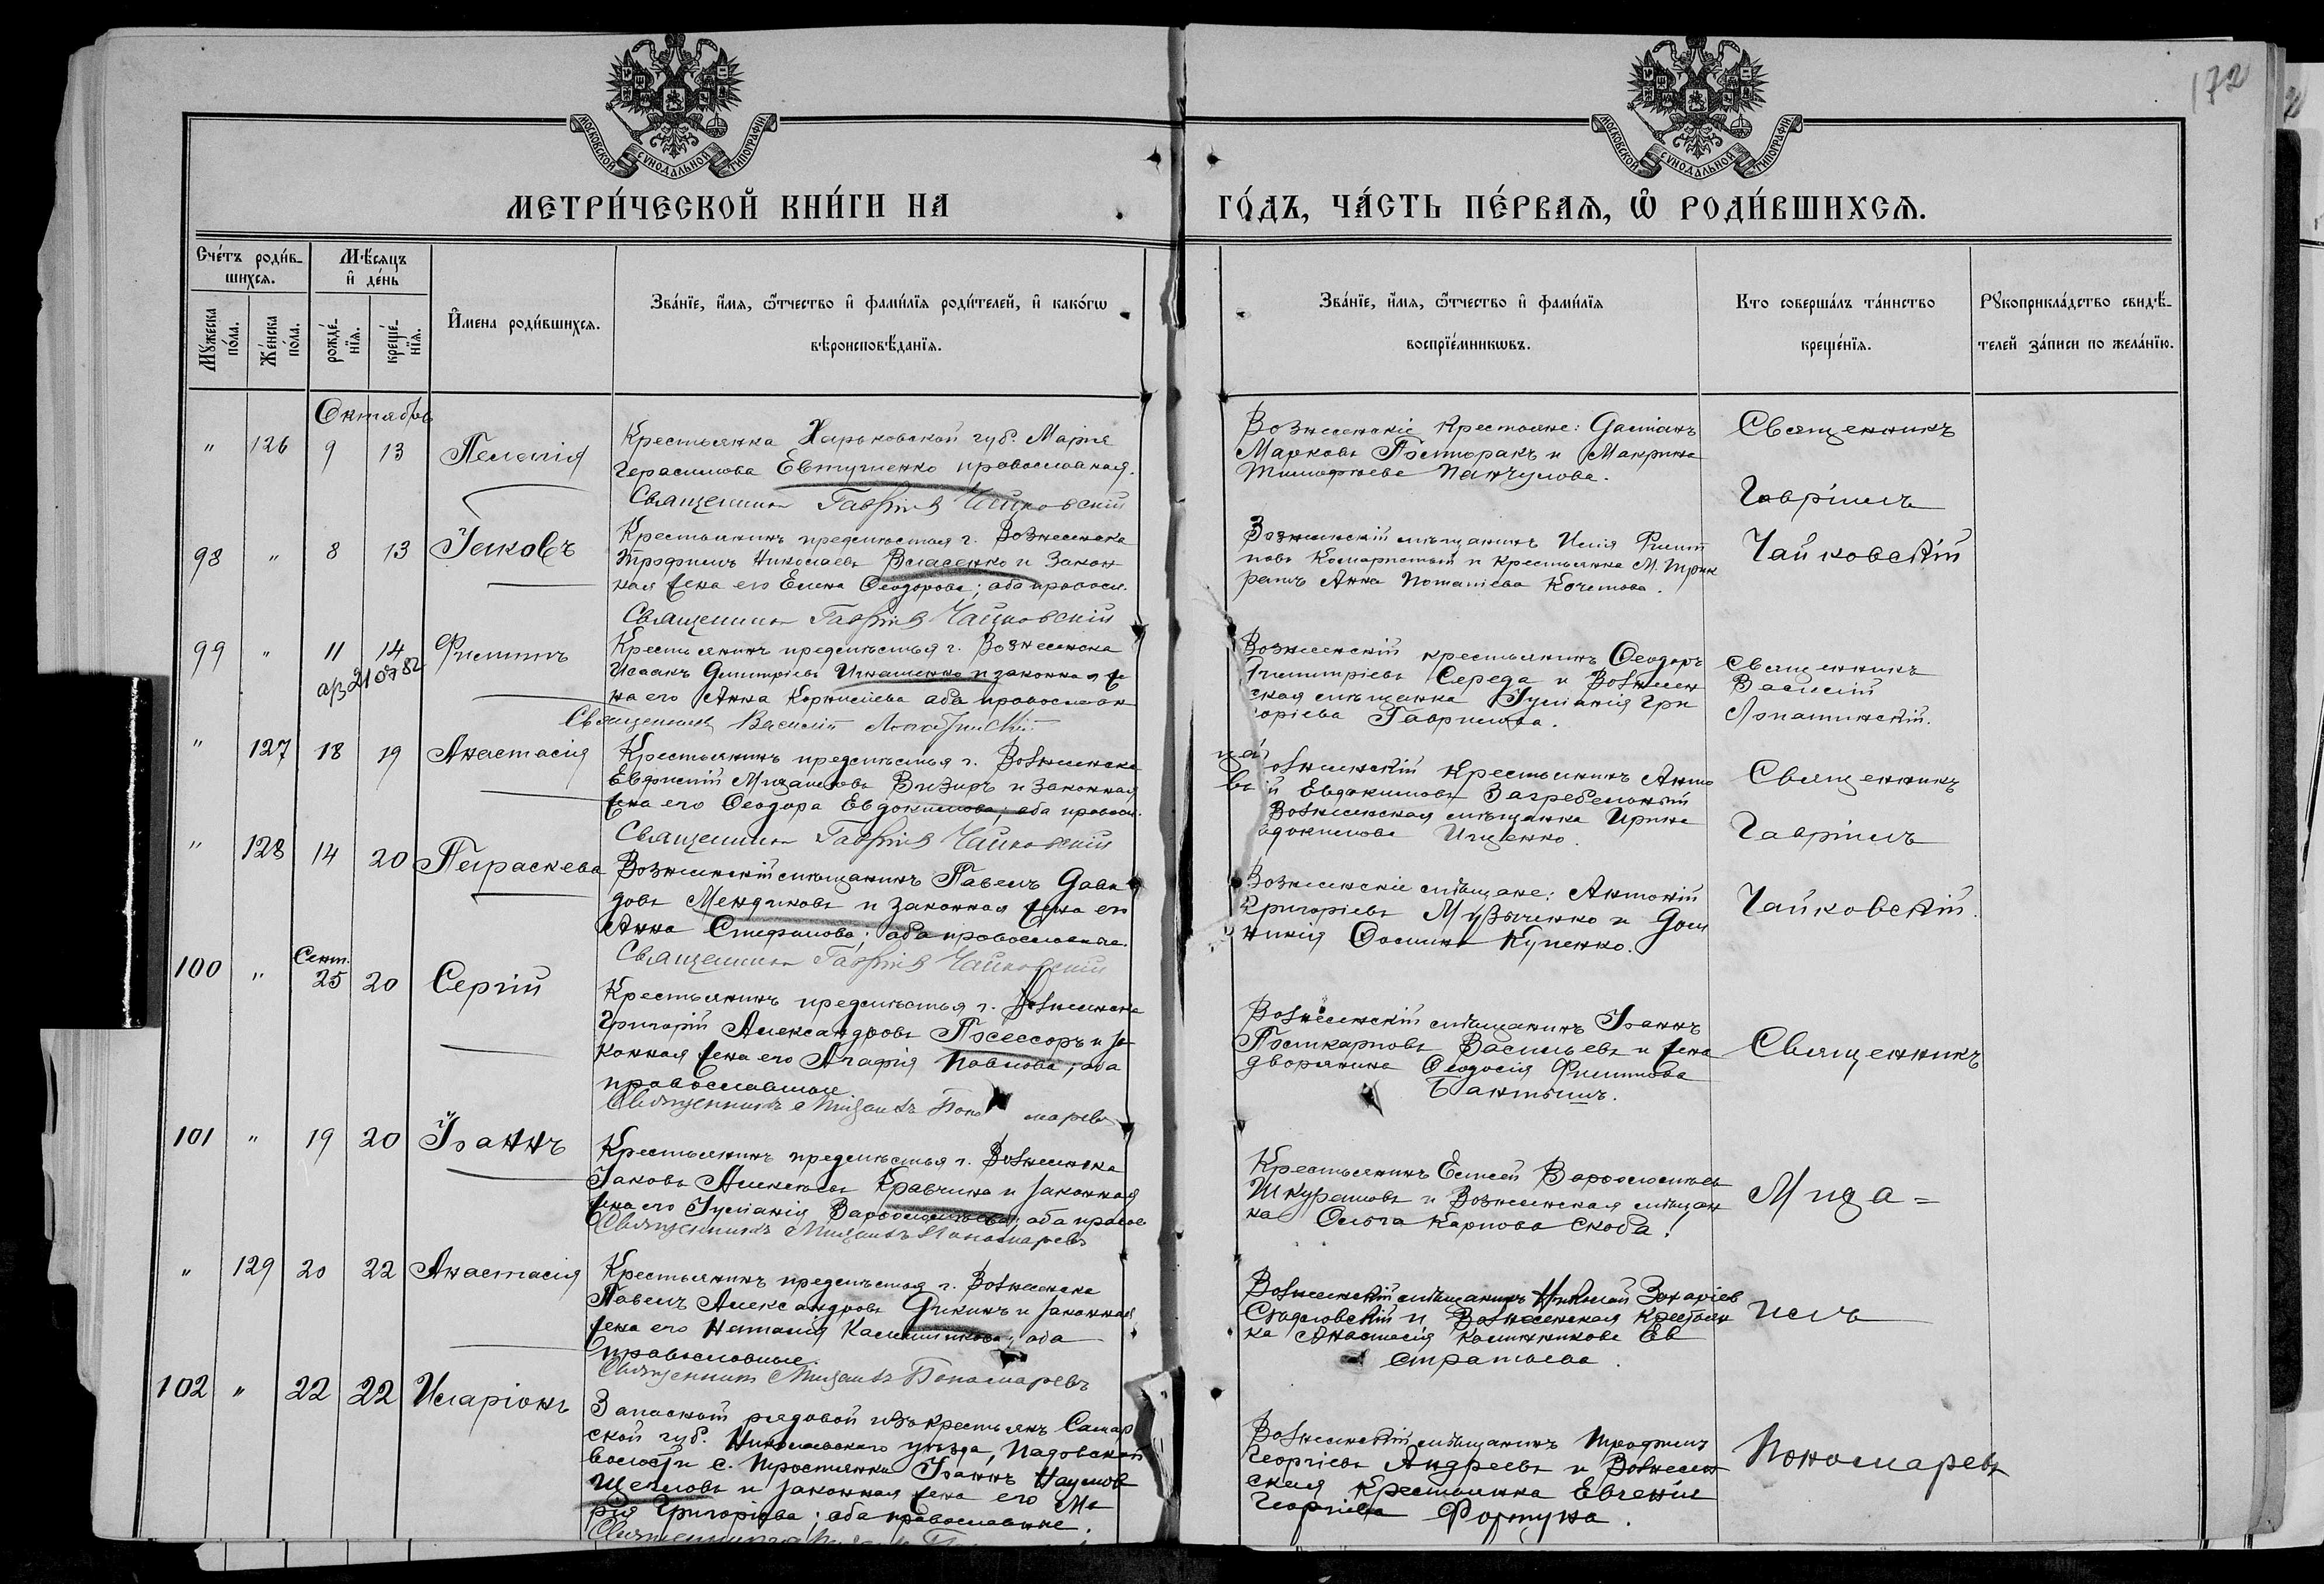 172
МОСКОВСКОЙ СѴНОДАЛЬНОЙ ТИПОГРАФІИ
МОСКОВСКОЙ СѴНОДАЛЬНОЙ ТИПОГРАФІИ
МЕТРИ́ЧЕСКОЙ КНИ́ГИ НА
ГО́ДЪ, ЧА́СТЬ ПЕ́РВАѦ, Ѡ҆ РОДИ́ВШИХСѦ.
Счéтъ роди́в-
шихсѧ.
Мꙋ́жеска по́ла.
Же́нска по́ла.
Мѣ́сѧцъ
и҆ де́нь
рожде́-
нїѧ.
креще́-
нїѧ.
И҆мена роди́вшихсѧ.
Зва́нїе, и҆́мѧ, ѻ҆́тчество и҆ фами́лїѧ роди́телей, и҆ како́гѡ
вѣроисповѣ́данїѧ.
Зва́нїе, и҆́мѧ, ѻ҆́тчество и҆ фами́лїѧ
воспрїе́мникѡвъ.
Кто соверша́лъ та́инство
креще́нїѧ.
Рꙋкоприкла́дство свидѣ́-
телей за́писи по жела́нїю.
Октябрь
" 126 9 13 Пелагія
Крестьянка Харьковской губ. Марія
Герасимова Евтушенко православная.
Священникъ Гавріилъ Чайковскій
Вознесенскіе крестьяне: Даміанъ
Марковъ Посторакъ и Макрина
Тимофеева Панчулова.
Священникъ
Гавріилъ
Чайковскій
98 " 8 13 Іаковъ
Крестьянинъ предмѣстья г. Вознесенска
Трофимъ Николаевъ Власенко и закон
ная жена его Елена Ѳеодорова; оба правосл.
Священникъ Гавріилъ Чайковскій
Вознесенскій мѣщанинъ Илія Филип
повъ и крестьянка М.
Анна Потапіева Кочетова.
99 " 11 14 Филиппъ
ав 210782
Крестьянинъ предмѣстья г. Вознесенска
Исаакъ Димитріевъ Игнатенко и законная же
на его Анна Корниліева оба православн
Священникъ Василій Лопатинскій
Вознесенскій крестьянинъ Ѳеодоръ
Димитріевъ Середа и Вознесен
ская мѣщанка Іуліанія Гри
горіева Гаврилова.
Священникъ
Василій
Лопатинскій.
" 127 18 19 Анастасія
Крестьянинъ предмѣстья г. Вознесенска
Евфимій Михаиловъ Визиръ и законная
жена его Ѳеодора Евдокимова; оба правосл.
Священникъ Гавріилъ Чайковскій
Вознесенскій крестьянинъ Анто
ній Евдокимовъ Загребельный
Вознесенская мѣщанка Ирина
Евдокимова Ищенко.
Священникъ
Гавріилъ
Чайковскій.
" 128 14 20 Параскева
Вознесенскій мѣщанинъ Павелъ Дави
довъ Мендриковъ и законная жена его
Анна Стефанова; оба православные.
Священникъ Гавріилъ Чайковскій
Вознесенскіе мѣщане: Антоній
Григоріевъ Музыченко и Дом
никія Ѳомина Куценко.
100 " Сент. 25 20 Сергій
Крестьянинъ предмѣстья г. Вознесенска
Григорій Александровъ Посессоръ и за
конная жена его Агафія Павлова; оба
православные
Священникъ Михаилъ Пономаревъ
Вознесенскій мѣщанинъ Іоаннъ
Поликарповъ Васильевъ и жена
дворянина Ѳеодосія Филиппова
Бантышъ.
Священникъ
Миха=
илъ
Пономаревъ
101 " 19 20 Іоаннъ
Крестьянинъ предмѣстья г. Вознесенска
Іаковъ Алексѣевъ Кравчина и законная
жена его Іуліанія Варѳоломѣева; оба правос
Священникъ Михаилъ Пономаревъ
Крестьянинъ Елисей Варѳоломѣевъ
Шкуратовъ и Вознесенская мѣщан
ка Ольга Карпова Скоба!
" 129 20 22 Анастасія
Крестьянинъ предмѣстья г. Вознесенска
Павелъ Александровъ Дикинъ и законная
жена его Наталія Калинникова; оба
православные.
Священникъ Михаилъ Пономаревъ
Вознесенскій мѣщанинъ Николай Захаріев
и Вознесенская крестьян
ка Анастасія Калинникова Ев
стратьева.
102 " 22 22 Иларіонъ
Запасной рядовой изъ крестьянъ Самар
ской губ. Николаевского уѣзда, Падовской
волости с. Тростянки Іоаннъ Наумов
Щегловъ и законная жена его Ма
рія Григоріева; оба православные.
Вознесенскій мѣщанинъ Трофимъ
Георгіевъ Андреевъ и Вознесен
ская крестьянка Евгенія
Георгіева Фортуна.